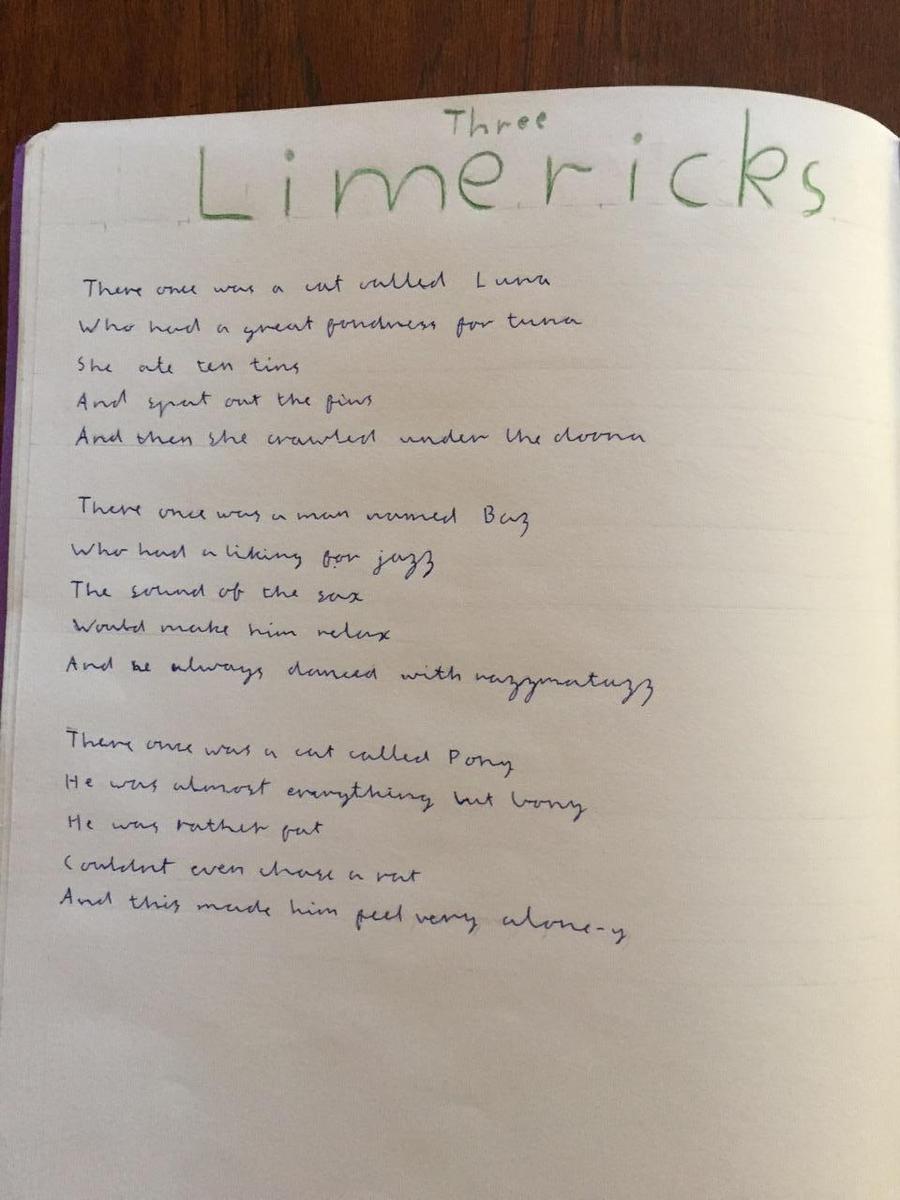 Three
Limericks
There once was a cat called Luna
Who had a great fondness for tuna
She ate ten tins
And spat out the fins
And then she crawled under the doona
There once was a man named Baz
Who had a liking for jazz
The sound of the sax
Would make him relax
And he always danced with razzmatazz
There once was a cat called Pony
He was almost everything but bony
He was rather fat
Couldnt even chase a rat
And this made him feel very alone-y